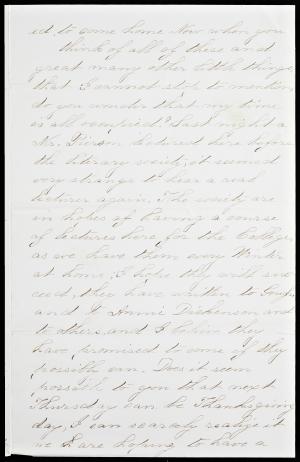 ed, to come home Now when you
think of all of these and
great many other little things,
that I cannot stop to mention
do you wonder that my time
is all occupied? Last night a
Mr. Pierson lectured here before
the literary society; it seemed
very strange to hear a real
lecturer again. The society are
in hopes of having a course
of lectures here, for the College,
as we have them every Winter
at home; I hope they will suc
ceed, they have written to
and to Annie Dickenson, and
to others, and I believe they
have promised to come if they
possible can. Does it seem
possible to you that next
Thursday can be Thanksgiving
day, I can scarcely realize it
we are hoping to have a